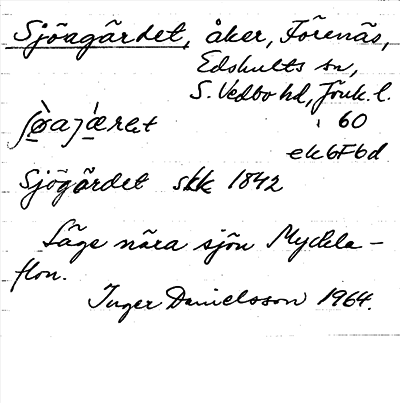 Sjöagärdet, åker, Förenäs,
Edshults sn,
S. Vedbo hd, Jönk. l.
60
ek 6F6d
Sjögärdet skk 1842
Läge nära sjön Mycklaflon.
Inger Danielsson 1964.